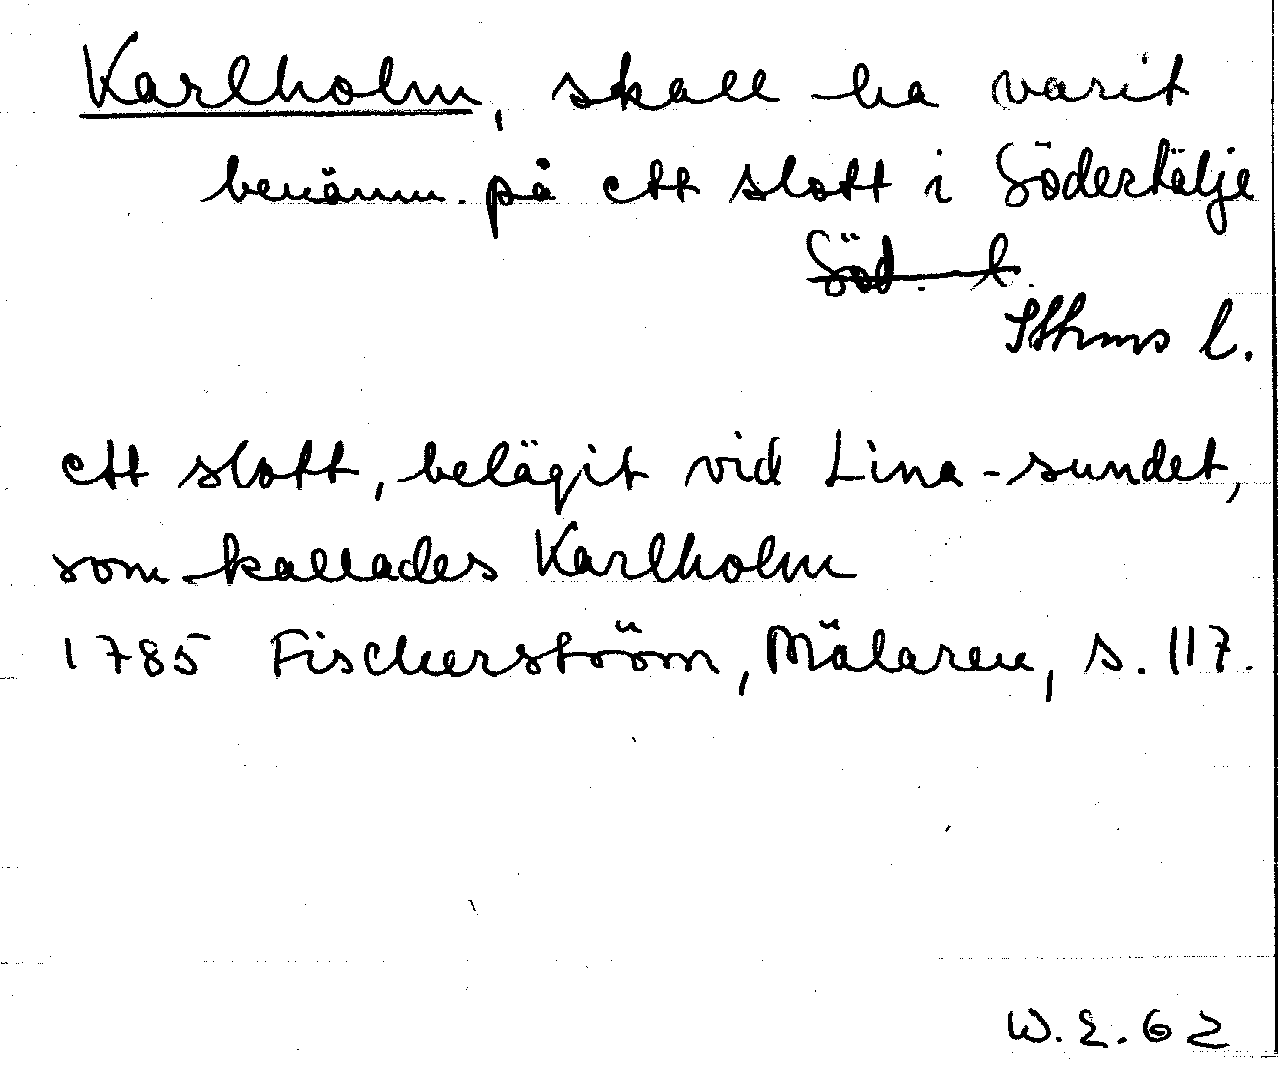 Karlholm, skall ha varit
benämn. på ett slott i Södertälje
Söd. l.
Sthms l.
ett slott, belägit vid Lina-sundet,
som kallades Karlholm
1785 Fischerström, Mälaren, s. 117.
W.E.62